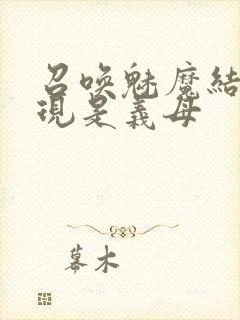 召喚魅魔結
現是義母
幕木